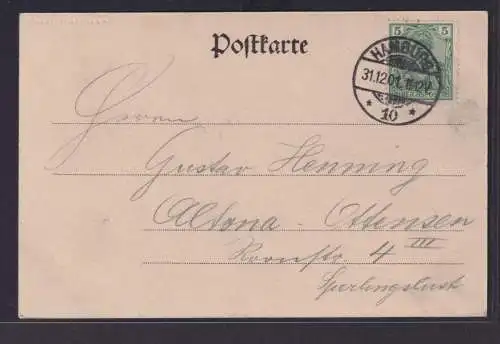 5 5
Postkarte
HAMBURG
31.12.01. 11-12V
* 10 *
Herrn
Gustav Henning
Altona - Ottensen
Roonstr 4 III
Sperlingslust